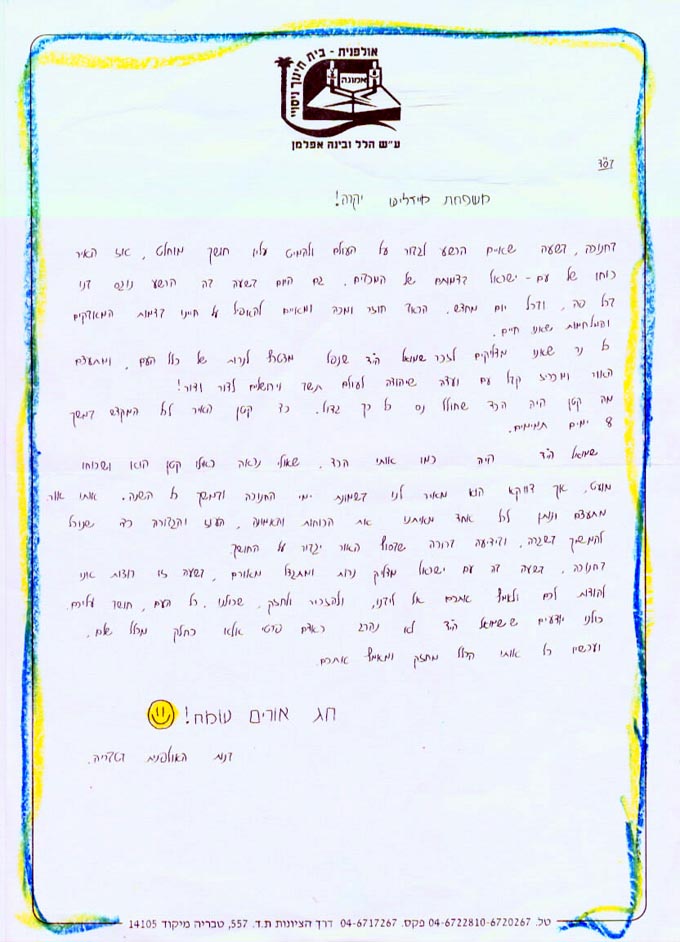 אולפנית - בית חינוך ניסויי
אמונה
ע"ש הלל ובינה אפלמן
בס"ד
משפחת יקרה!
בחנוכה, בשעה שאיים הרשע לגבור על העולם ולהמיט עליו חושך מוחלט, אז האיר
כוחו של עם - ישראל בדמותם של המכבים. גם היום בשעה בה הרשע נוגס בנו
בכל פה, ובכל יום מחדש, הראד חוזר ומכה ומאיים להאפיל על חיינו בדמות המאבקים
והמלחמות שאנו חיים.
כל נר שאנו מדליקים לזכר שמואל הי"ד שנפל מצטרף לנרות של כלל העם, ומתעצם
האור ומכריז קבל עם ועדה שיהודה לעולם תשב וירושלים לדור ודור!
מה קטן היה הכד שחולל נס כל כך גדול. כד קטן האיר לכל המקדש במשך
8 ימים תמימים.
שמואל הי"ד היה כמו אותו הכד, שאולי נראה כאילו קטן הוא ושכוחו
מועט, אך דווקא הוא מאיר לנו בשמונת ימי החנוכה ובמשך כל השנה. אותו אור
מתעצם ונותן לכל אחד מאיתנו את הכוחות והאמונה, העוז והגבורה כדי שנוכל
להמשיך בשגרה, ובידיעה ברורה שבסוף האור יגבור על החושך.
בחנוכה, בשעה בה עם ישראל מדליק נרות ומתגבל מאורם, בשעה זו רוצות אנו
להודות לכם ולאמץ אתכם אל ליבנו, ולהזכיר ולחזק, שכולנו, כל העם, חושב עליכם.
כולנו יודעים ששמואל הי"ד לא נהרג כאדם פרטי אלא כחלק מכלל שלם,
ועכשיו כל אותו הכלל מחזק ומאמץ אתכם.
חג אורים שמח!
בנות האולפנית טבריה.
טל. 04-6722810-6720267 פקס. 04-6717267 דרך הציונות ת.ד. 557, טבריה מיקוד 14105